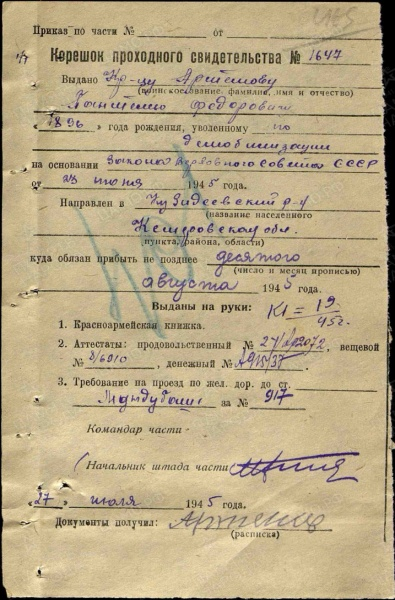 Приказ по части № от
Корешок проходного свидетельства № 1647
Выдано Кр-цу Артемову
(воинское звание, фамилия, имя и отчество)
Федоровичу
"1896" года рождения, уволенному по
демобилизации
на основании Закона Верховного Совета СССР
от 23 июня 1945 года.
Направлен в р-н
(название населенного
Кемеровской обл.
пункта, района, области)
куда обязан прибыть не позднее десятого
(число и месяц прописью)
августа 1945 года.
Выданы на руки:
1. Красноармейская книжка.
2. Аттестаты: продовольственный № вещевой
№ денежный №
3. Требование на проезд по жел. дор. до ст.
за № 917
Командир части
Начальник штаба части
"27" июля 1945 года.
Документы получил:
(расписка)